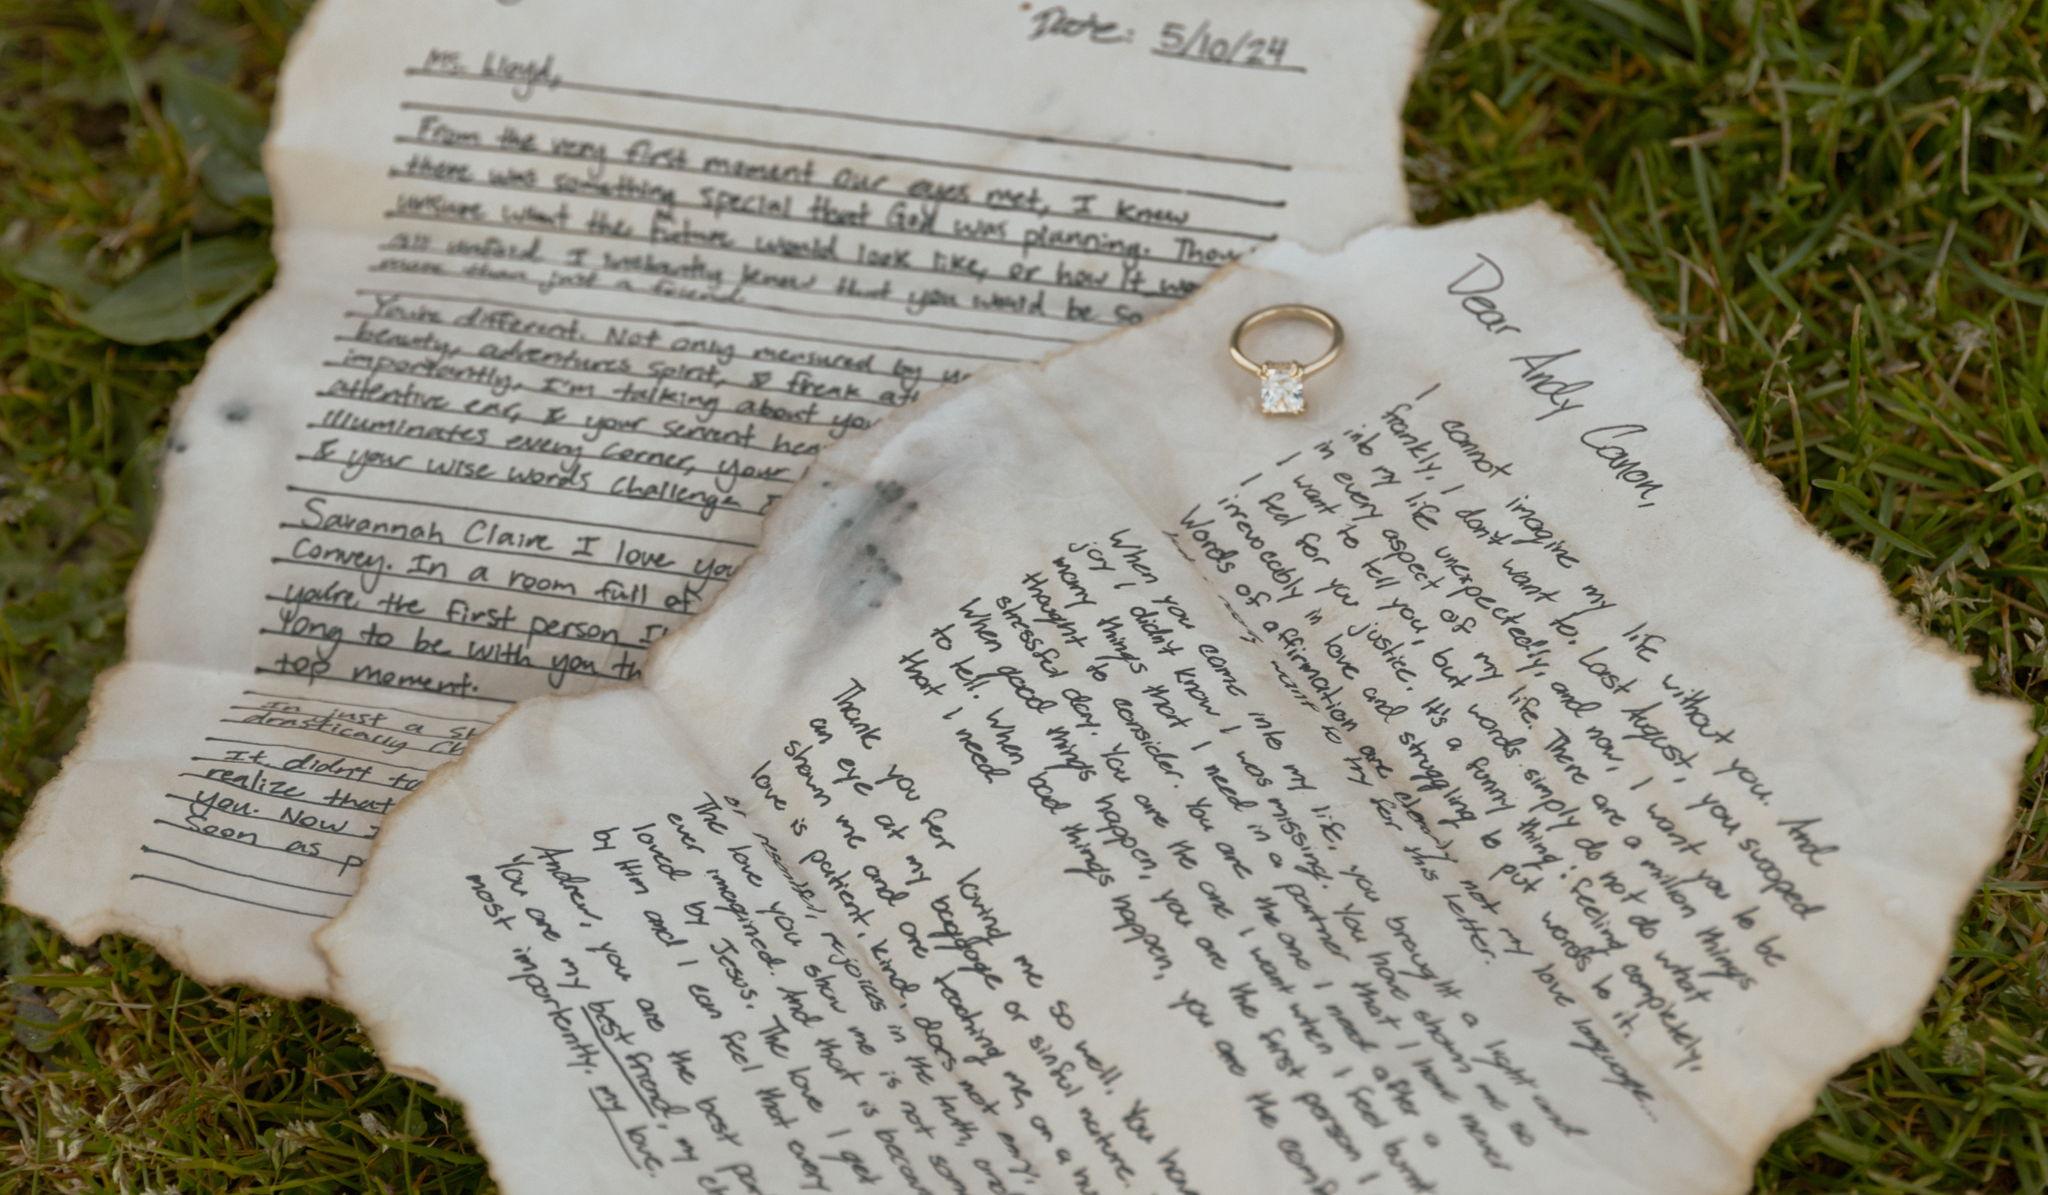 Date: 5/10/24
Ms. Lloyd,
From the very first moment our eyes met, I knew
there was something special that God was planning. Thou
unsure what the future would look like, or how it wo
all unfold I instantly knew that you would be so
more than just a friend.
You're different. Not only measured by yo
beauty, adventures spirit, & freak at
importantly, I'm talking about you
attentive ear, & your servant hea
illuminates every corner, your
& your wise words challenge
Savannah Claire I love you
Convey. In a room full of
you're the first person I'
Yong to be with you th
top moment.
In just a sh
drastically ch
It didn't to
realize that
you. Now I
Soon as p
Dear Andy Canon,
I cannot imagine my life without you. And
frankly, I don't want to. Last August, you swooped
into my life unexpectedly, and now, I want you to be
in every aspect of my life. There are a million things
I want to tell you, but words simply do not do what
I feel for you justice. It's a funny thing: feeling completely,
irrevocably in love and struggling to put words to it.
Words of affirmation are clearly not my love language...
but I want to try for this letter.
When you came into my life, you brought a light and
joy I didn't know I was missing. You have shown me so
many things that I need in a partner that I have never
thought to consider. You are the one I need after a
stressful day. You are the one I want when I feel burnt
When good things happen, you are the first person I
to tell. When bad things happen, you are the comf
that I need
Thank you for loving me so well. You hav
an eye at my baggage or sinful nature.
shown me and are teaching me, on a
love is patient, kind, does not envy,
or resentful, rejoices in the truth, and
The love you show me is not som
ever imagined. And that is becau
loved by Jesus. The love I get
by Him and I can feel that every
Andrew, you are the best par
You are my best friend, my ch
most importantly, my love.